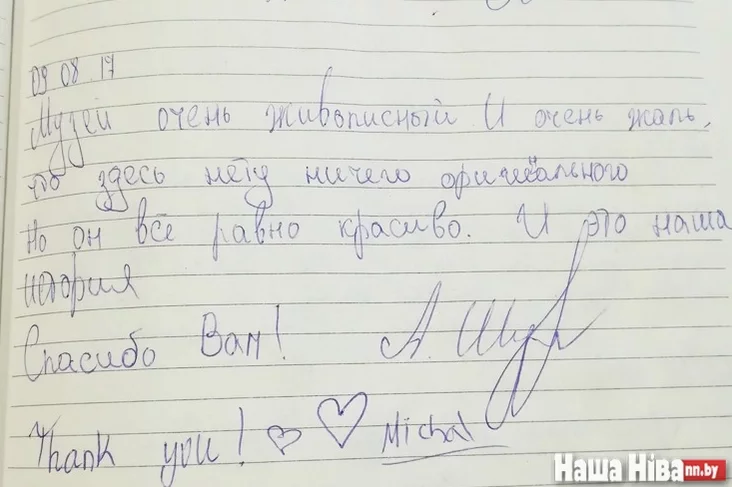 09 08 17
Музей очень живописный И очень жаль,
что здесь нету ничего оригинального
Но он всё равно красиво. И это наша
история
Спасибо Вам!
Thank you! Michal
Наша Ніва nn.by